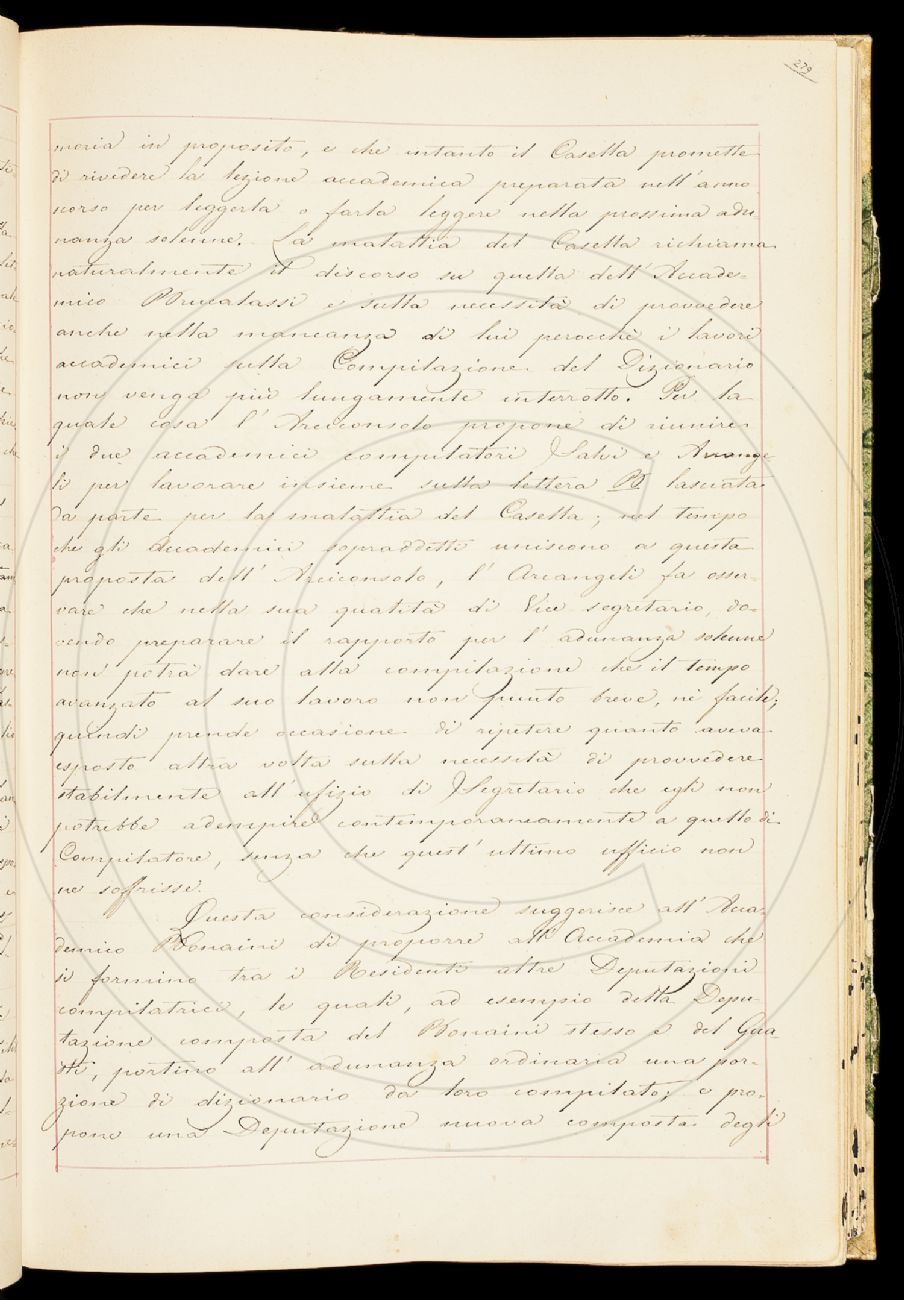 279
moria in proposito, e che intanto il Casella promette
di rivedere la lezione accademica preparata nell'anno
corso per leggerla o farla leggere nella prossima adu-
nanza solenne. La malattia del Casella richiama
naturalmente il discorso su quella dell'Accade-
mico Brucalassi e sulla necessità di provvedere
anche nella mancanza di lui perocchè i lavori
accademici sulla Compilazione del Dizionario
non venga più lungamente interrotto. Per la
quale cosa l'Arciconsolo propone di riunire
i due accademici compilatori Salvi e Arcange-
li per lavorare insieme sulla lettera B lasciata
da parte per la malattia del Casella; nel tempo
che gli Accademici sopraddetti uniscono a questa
proposta dell'Arciconsolo, l'Arcangeli fa osser-
vare che nella sua qualità di Vice segretario, do-
vendo preparare il rapporto per l'adunanza solenne
non potrà dare alla compilazione che il tempo
avanzato al suo lavoro non punto breve, nè facile;
quindi prende occasione di ripetere quanto aveva
esposto altra volta sulla necessità di provvedere
stabilmente all'ufizio di Segretario che egli non
potrebbe adempire contemporaneamente a quello di
Compilatore, senza che quest'ultimo ufficio non
ne soffrisse.
Questa considerazione suggerisce all'Acca-
demico Bonaini di proporre all'Accademia che
si formino tra i Residenti altre Deputazioni
compilatrici, le quali, ad esempio della Depu-
tazione composta del Bonaini stesso e del Gua-
sti, portino all'adunanza ordinaria una por-
zione di dizionario da loro compilato; e pro-
pone una Deputazione nuova composta degli